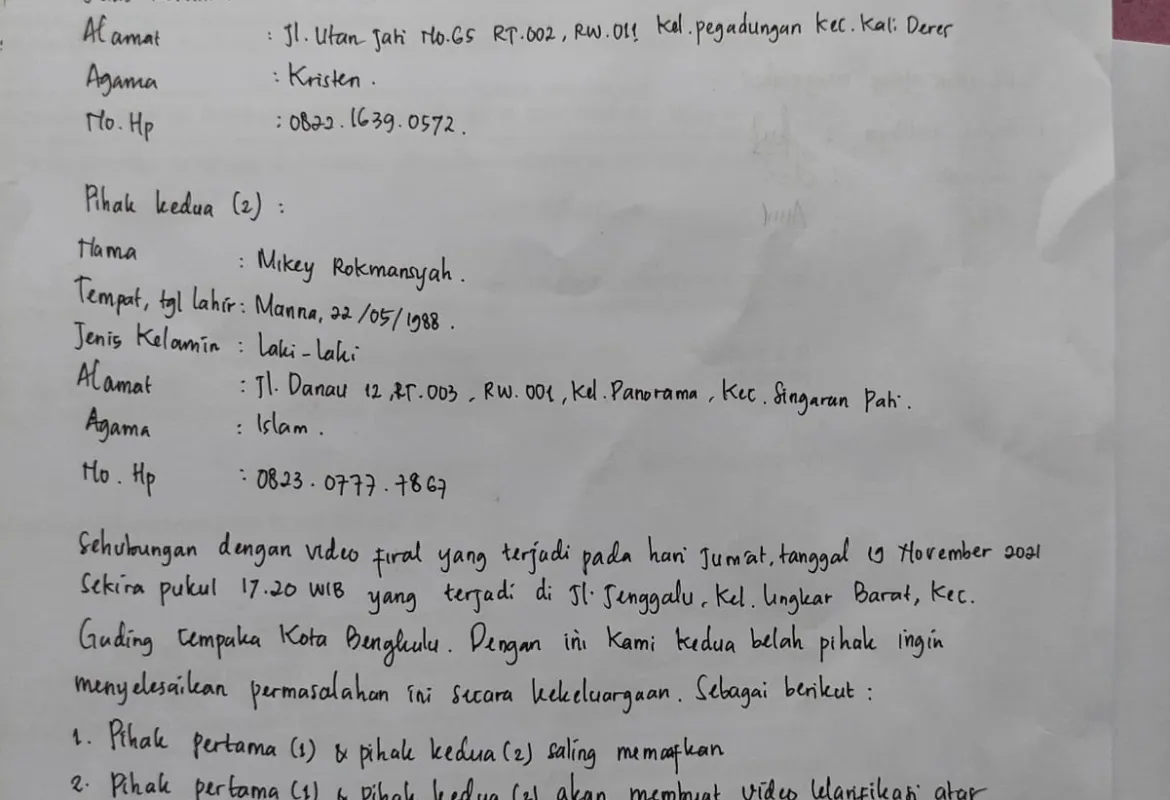 Alamat : Jl. Utan Jati No.65 RT.002, RW.011 Kel.pegadungan Kec.Kali Deres
Agama : Kristen.
No.Hp : 0822.1639.0572.
Pihak kedua (2) :
Nama : Mikey Rokmansyah.
Tempat, tgl lahir : Manna, 22/05/1988.
Jenis Kelamin : Laki-laki
Alamat : Jl. Danau 12, RT.003, RW.001, Kel.Panorama, Kec. Singaran Pati.
Agama : Islam.
No. Hp : 0823.0777.7867
Sehubungan dengan video firal yang terjadi pada hari Jum'at, tanggal 19 November 2021
Sekira pukul 17.20 WIB yang terjadi di Jl. Jenggalu, Kel. Lingkar Barat, Kec.
Gading Cempaka Kota Bengkulu. Dengan ini Kami kedua belah pihak ingin
menyelesaikan permasalahan ini secara kekeluargaan. Sebagai berikut :
1. Pihak pertama (1) & pihak kedua (2) saling memaafkan
2. Pihak pertama (1) & pihak kedua (2) akan membuat video klarifikasi atas